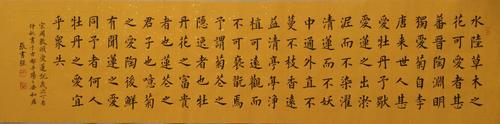 水陸草木之
花可愛者甚
蕃晉陶淵明
獨愛菊自李
唐來世人甚
愛牡丹予獨
愛蓮之出淤
泥而不染濯
清漣而不妖
中通外直不
蔓不枝香遠
益清亭亭淨
植可遠觀而
不可褻翫焉
予謂菊花之
隱逸者也牡
丹花之富貴
者也蓮花之
君子也噫菊
之愛陶後鮮
有聞蓮之愛
同予者何人
牡丹之愛宜
乎衆矣
宋周敦頤愛蓮說
仲秋書于古都